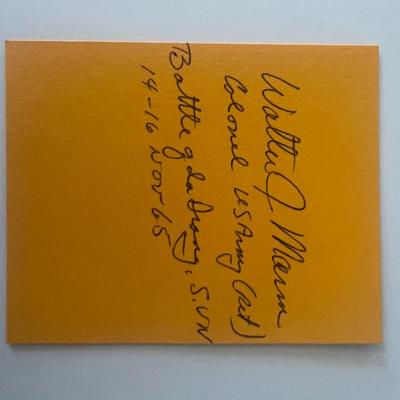 Walter J Marm
Colonel US Army (Ret)
Battle of Ia Drang, S.VN
14-16 Nov 65